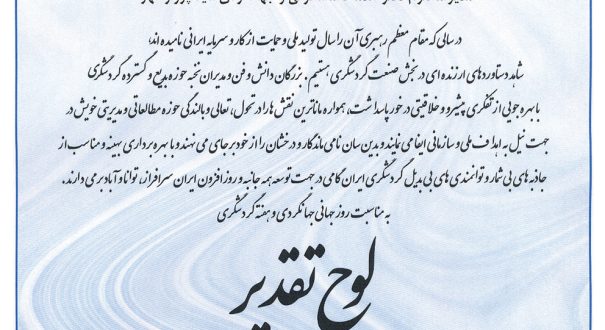 در سالی که مقام معظم رهبری آن را سال تولید ملی و حمایت از کار و سرمایه ایرانی نامیده اند،
شاهد دستاوردهای ارزنده ای در بخش صنعت گردشگری هستیم. بزرگان دانش و فن و مدیران نخبه حوزه بدیع و گسترده گردشگری
با بهره جویی از تفکری پیشرو و خلاقیتی در خور پاسداشت، همواره ماناترین نقش ها را در تحول، تعالی و بالندگی حوزه مطالعاتی و مدیریتی خویش در
جهت نیل به اهداف ملی و سازمانی ایفا می نمایند و بدین سان نامی ماندگار و درخشان را از خود بر جای می نهند و با بهره برداری بهینه و مناسب از
جاذبه های بی شمار و توانمندی های بی بدیل گردشگری ایران گامی در جهت توسعه همه جانبه و روز افزون ایران سرافراز، توانا و آباد بر می دارند.
به مناسبت روز جهانی جهانگردی و هفته گردشگری
لوح تقدیر